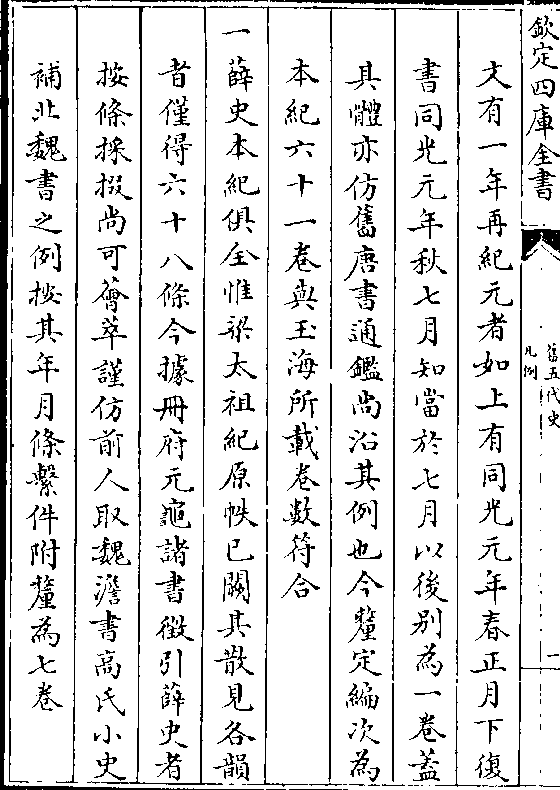 欽定四庫全書
舊五代史
凡例
一
文有一年再紀元者如上有同光元年春正月下復
書同光元年秋七月知當於七月以後別為一卷蓋
其體亦仿舊唐書通鑑尚沿其例也今釐定編次為
本紀六十一卷與玉海所載卷數符合
一薛史本紀俱全惟梁太祖紀原帙已闕其散見各韻
者僅得六十八條今據冊府元龜諸書徵引薛史者
按條採掇尚可薈萃謹仿前人取魏澹書高氏小史
補北魏書之例按其年月條繫件附釐為七卷